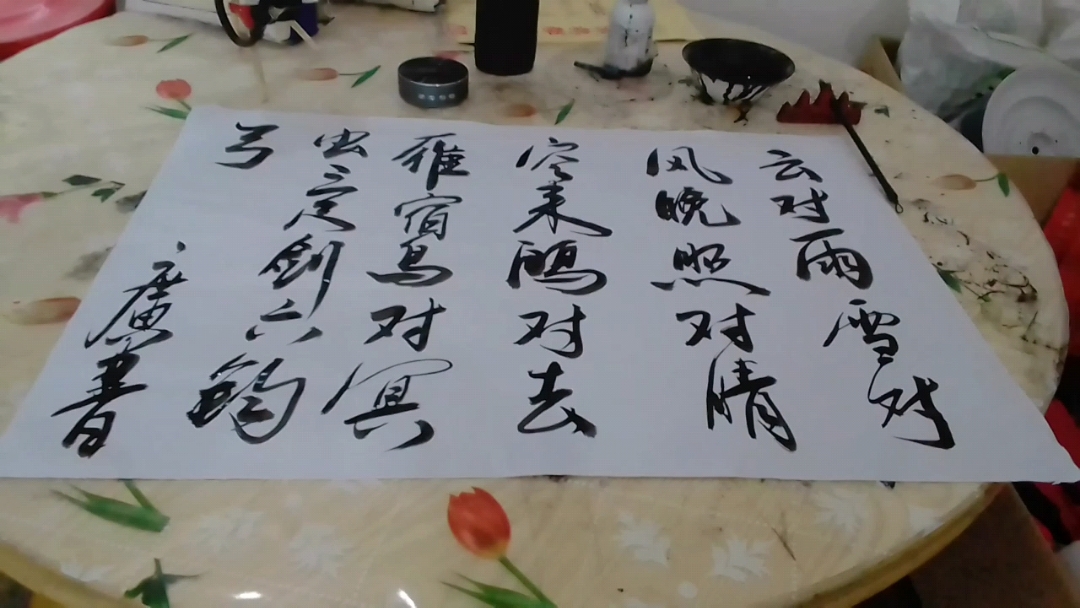 云对雨雪对
风晚照对晴
空来鸿对去
雁宿鸟对冥
虫三尺剑六钧
弓
廣書